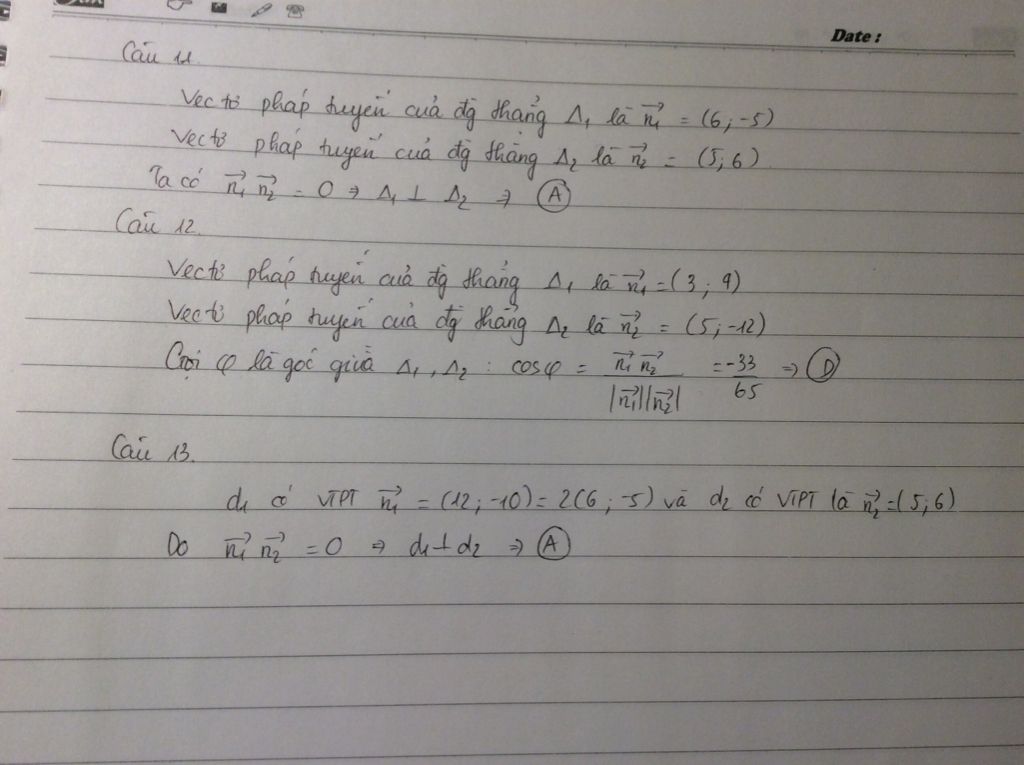 Date :
Câu 11.
Vectơ pháp tuyến của đg thẳng Δ₁ là n₁⃗ = (6; -5)
Vectơ pháp tuyến của đg thẳng Δ₂ là n₂⃗ = (5; 6)
Ta có n₁⃗ n₂⃗ = 0 ⇒ Δ₁ ⊥ Δ₂ ⇒ Ⓐ
Câu 12.
Vectơ pháp tuyến của đg thẳng Δ₁ là n₁⃗ = (3; 4)
Vectơ pháp tuyến của đg thẳng Δ₂ là n₂⃗ = (5; -12)
Gọi φ là góc giữa Δ₁, Δ₂ : cosφ = n₁⃗ n₂⃗ / |n₁⃗||n₂⃗| = -33/65 ⇒ Ⓓ
Câu 13.
d₁ có VTPT n₁⃗ = (12; -10) = 2(6; -5) và d₂ có VTPT là n₂⃗ = (5; 6)
Do n₁⃗ n₂⃗ = 0 ⇒ d₁ ⊥ d₂ ⇒ Ⓐ